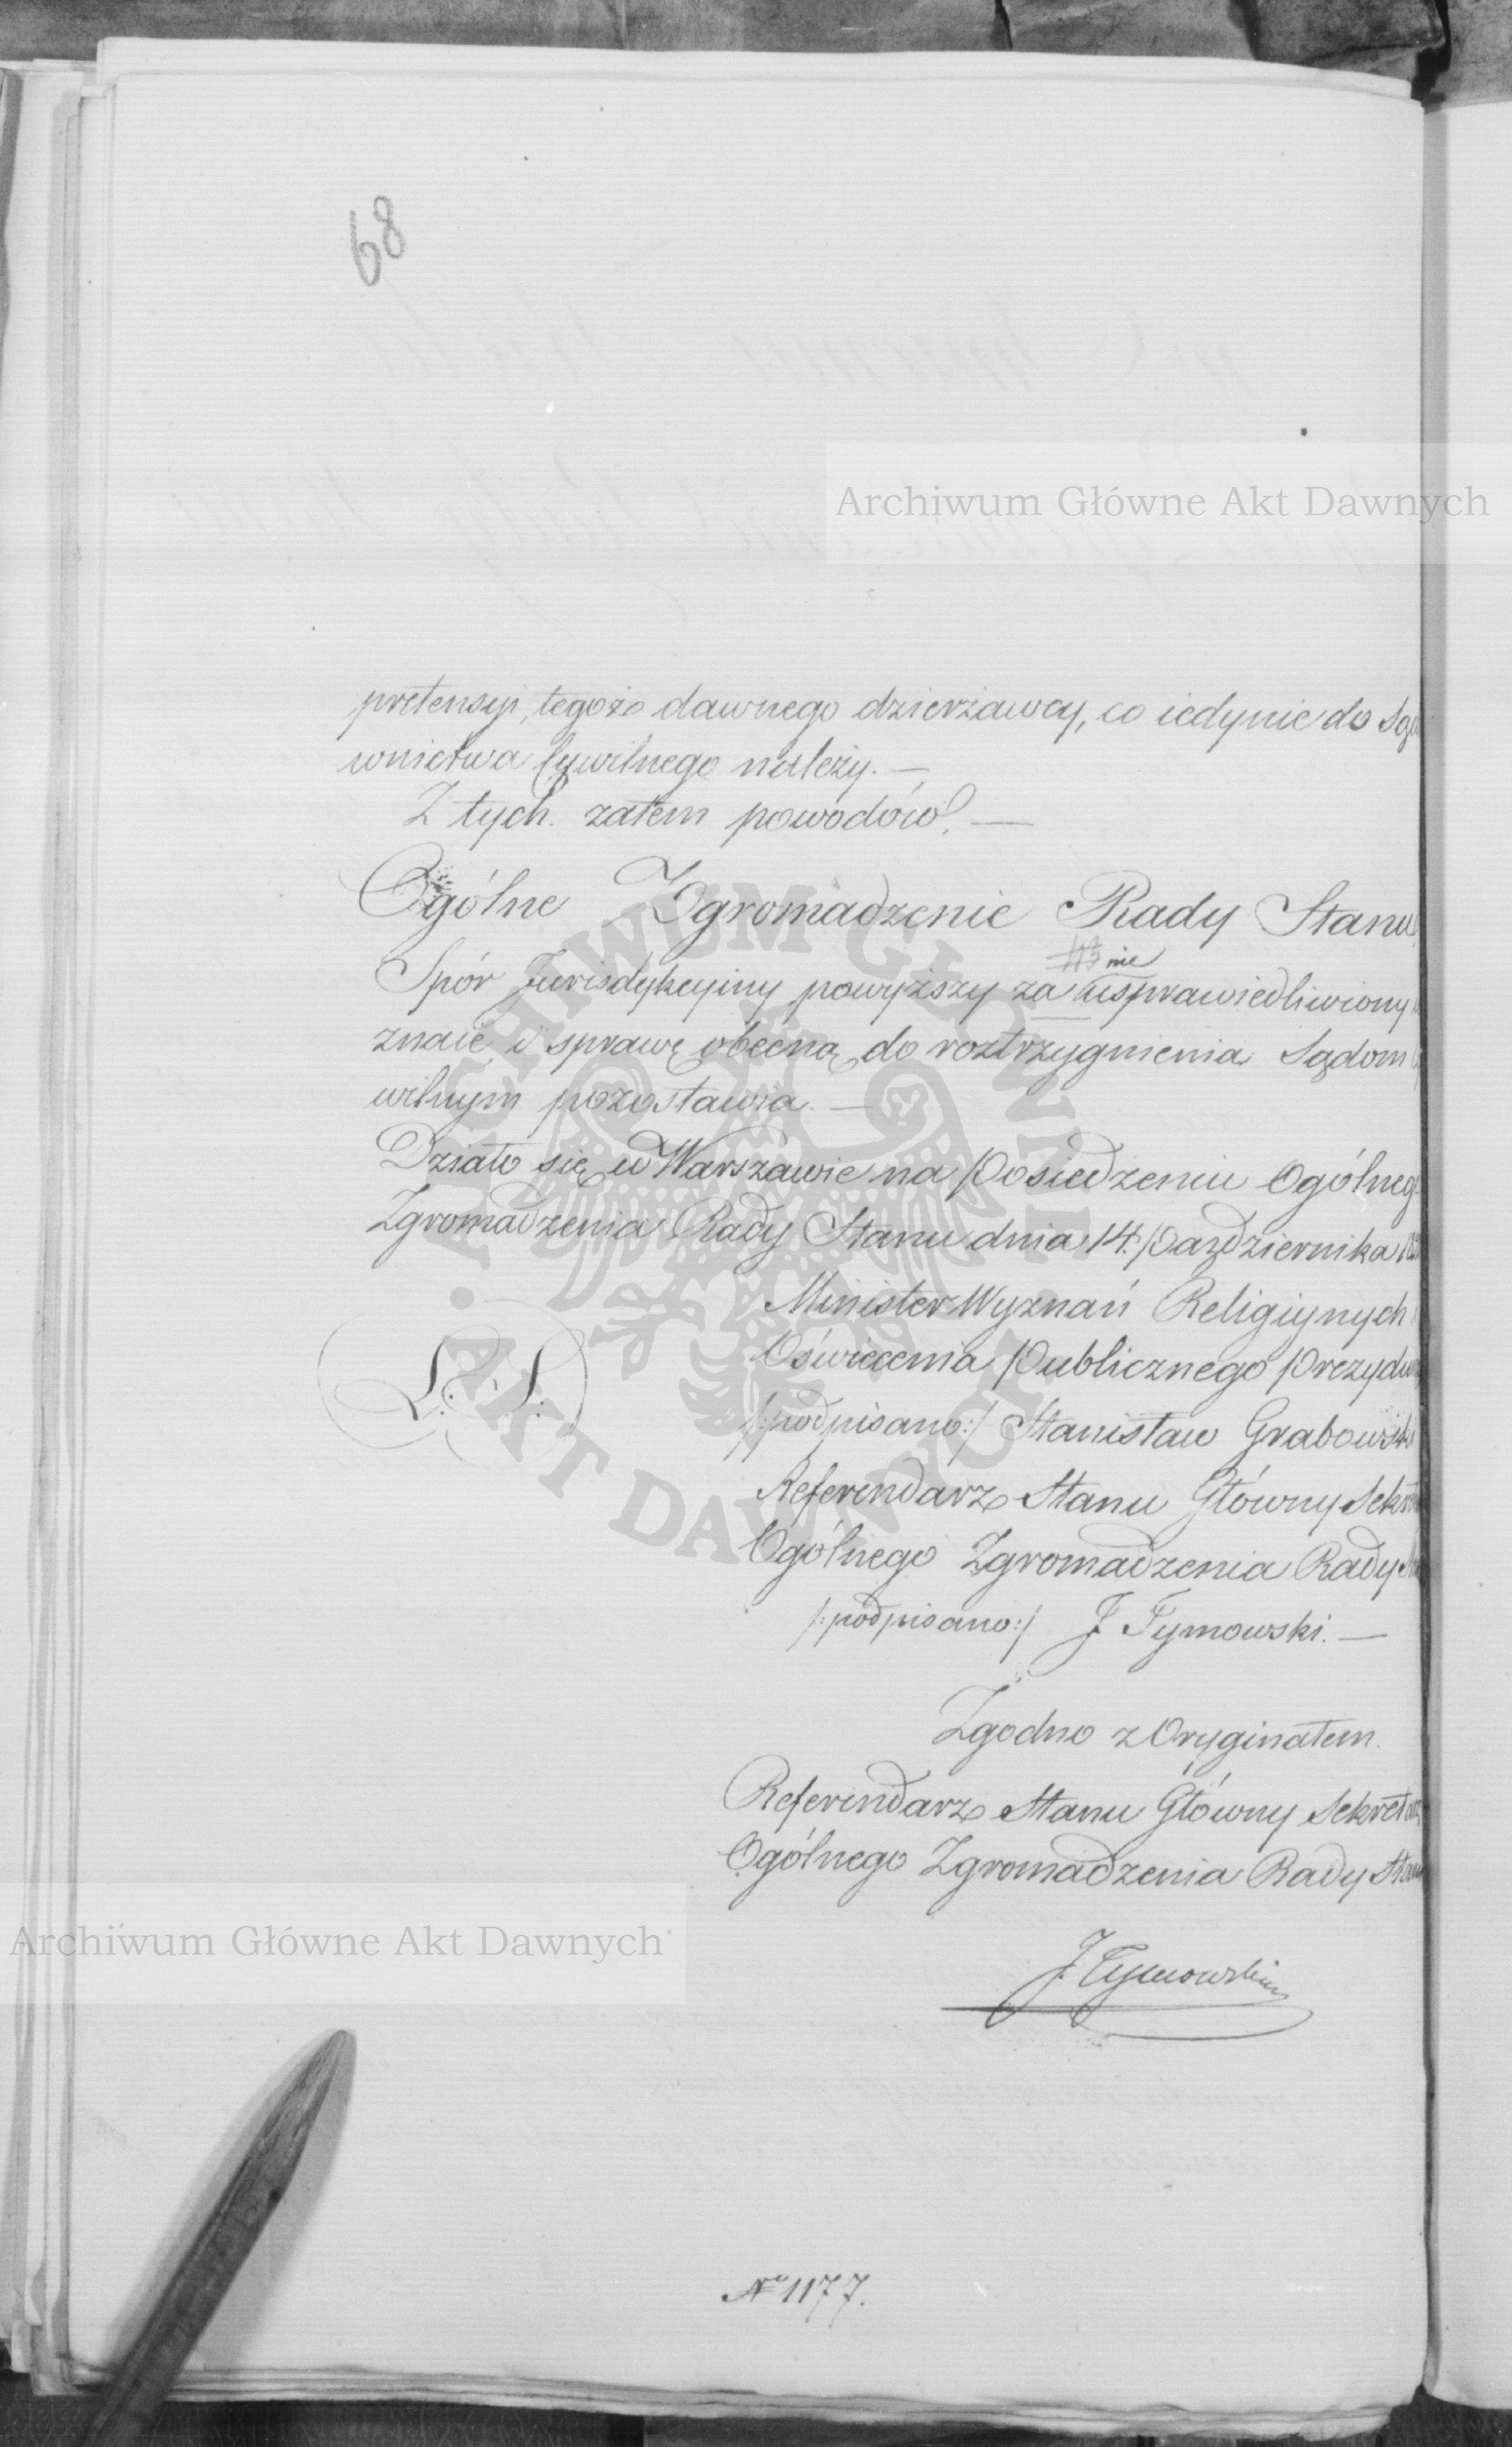 68
Archiwum Główne Akt Dawnych
pretensyi, tegoż dawnego dzierżawcy, co iedynie do Są
wnictwa Cywilnego należy. —
Z tych zatem powodów. —
Ogólne Zgromadzenie Rady Stanu
nie
Spór Jurisdykcyiny powyższy za usprawiedliwiony
znaie i sprawę obecną do roztrzygnienia Sądom
wilnym pozostawia. —
Działo się w Warszawie na Posiedzeniu Ogólneg
Zgromadzenia Rady Stanu dnia 14. Października 18
Minister Wyznań Religiynych
Oświecenia Publicznego Prezydu
L. S.
/:podpisano:/ Stanisław Grabowski
Referendarz Stanu Główny Sekret
Ogólnego Zgromadzenia Rady
/:podpisano:/ J Tymowski. —
Zgodno z Oryginałem.
Referendarz Stanu Główny Sekretarz
Ogólnego Zgromadzenia Rady Stanu
Archiwum Główne Akt Dawnych
J Tymowski
No 1177.
ARCHIWUM GŁÓWNE · AKT DAWNYCH ·